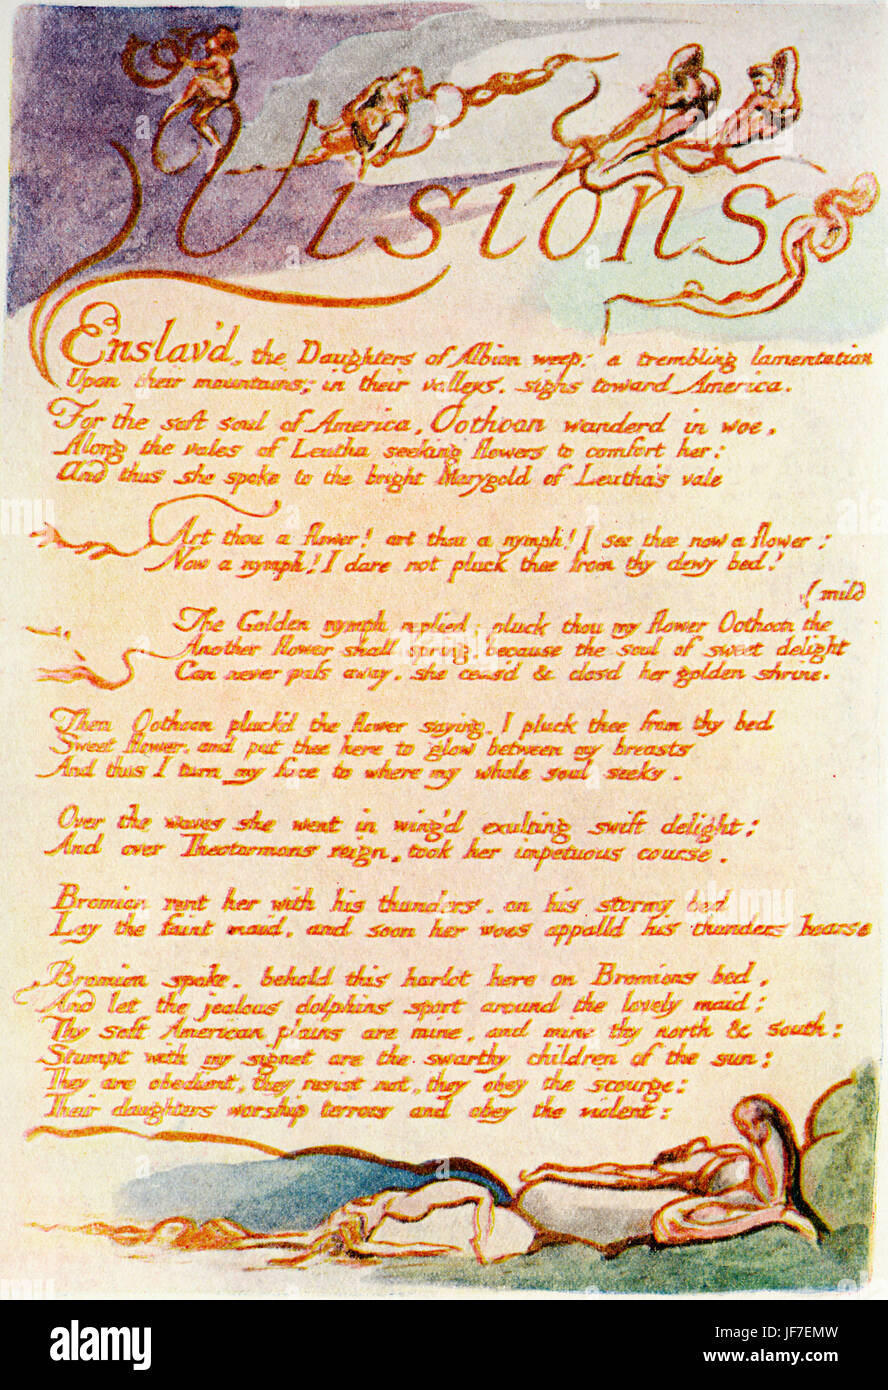 Visions
Enslav'd, the Daughters of Albion weep: a trembling lamentation
Upon their mountains; in their valleys, sighs toward America.
For the soft soul of America, Oothoon wanderd in woe,
Along the vales of Leutha seeking flowers to comfort her;
And thus she spoke to the bright Marygold of Leutha's vale
Art thou a flower! art thou a nymph! I see thee now a flower;
Now a nymph! I dare not pluck thee from thy dewy bed!
(mild
The Golden nymph replied; pluck thou my flower Oothoon the
Another flower shall spring, because the soul of sweet delight
Can never pass away. she ceas'd & closd her golden shrine.
Then Oothoon pluck'd the flower saying, I pluck thee from thy bed
Sweet flower. and put thee here to glow between my breasts
And thus I turn my face to where my whole soul seeks.
Over the waves she went in wing'd exulting swift delight;
And over Theotormons reign, took her impetuous course.
Bromion rent her with his thunders. on his stormy bed
Lay the faint maid, and soon her woes appalld his thunders hoarse
Bromion spoke. behold this harlot here on Bromions bed,
And let the jealous dolphins sport around the lovely maid;
Thy soft American plains are mine, and mine thy north & south:
Stampt with my signet are the swarthy children of the sun:
They are obedient, they resist not, they obey the scourge:
Their daughters worship terrors and obey the violent:
alamy
alamy
Image ID: JF7EMW
www.alamy.com